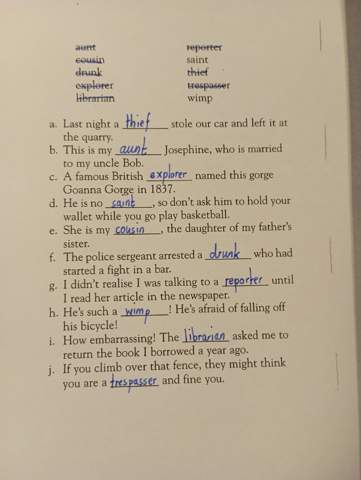 aunt reporter
cousin saint
drunk thief
explorer trespasser
librarian wimp
a. Last night a thief stole our car and left it at
the quarry.
b. This is my aunt Josephine, who is married
to my uncle Bob.
c. A famous British explorer named this gorge
Goanna Gorge in 1837.
d. He is no saint, so don't ask him to hold your
wallet while you go play basketball.
e. She is my cousin, the daughter of my father's
sister.
f. The police sergeant arrested a drunk who had
started a fight in a bar.
g. I didn't realise I was talking to a reporter until
I read her article in the newspaper.
h. He's such a wimp! He's afraid of falling off
his bicycle!
i. How embarrassing! The librarian asked me to
return the book I borrowed a year ago.
j. If you climb over that fence, they might think
you are a trespasser and fine you.